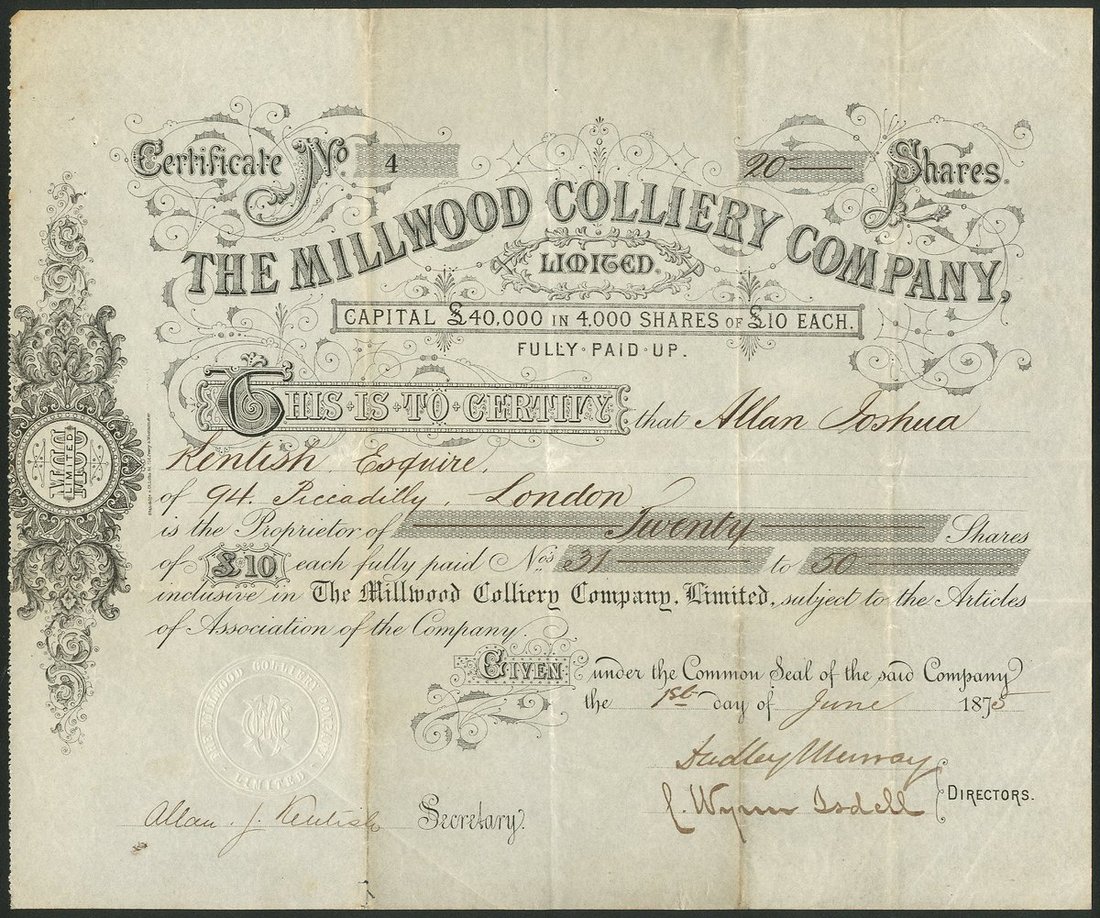 Certificate No. 4
20 Shares.
THE MILLWOOD COLLIERY COMPANY,
LIMITED.
CAPITAL £40,000 IN 4,000 SHARES OF £10 EACH.
FULLY PAID UP.
THIS IS TO CERTIFY that Allan Joshua
Kentish Esquire,
of 94. Piccadilly, London
is the Proprietor of Twenty Shares
of £10 each fully paid Nos 31 to 50
inclusive in The Millwood Colliery Company, Limited, subject to the Articles
of Association of the Company.
GIVEN under the Common Seal of the said Company
the 1st day of June 1875
Dudley Murray
C. Wynn Isdell
DIRECTORS.
Allan. J. Kentish Secretary.
MCC
LIMITED
THE MILLWOOD COLLIERY COMPANY
LIMITED